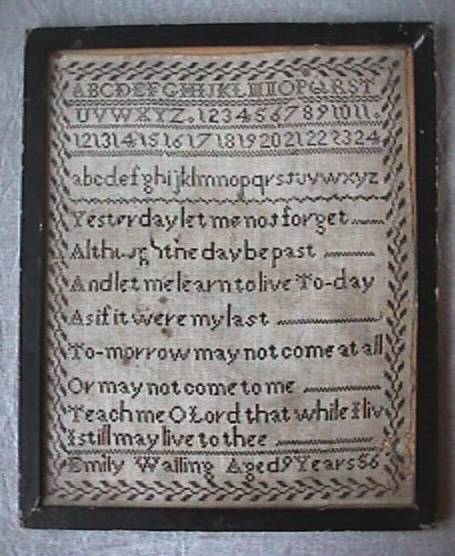 ABCDEFGHIJKLMNOPQRST
UVWXYZ. 1234567891011.
12131415161718192021222324
abcdefghijklmnopqrstuvwxyz
Yesterday let me not forget
Although the day be past
And let me learn to live To-day
As if it were my last
To-morrow may not come at all
Or may not come to me
Teach me O Lord that while I liv
I still may live to thee
Emily Walling Aged 9 Years 56